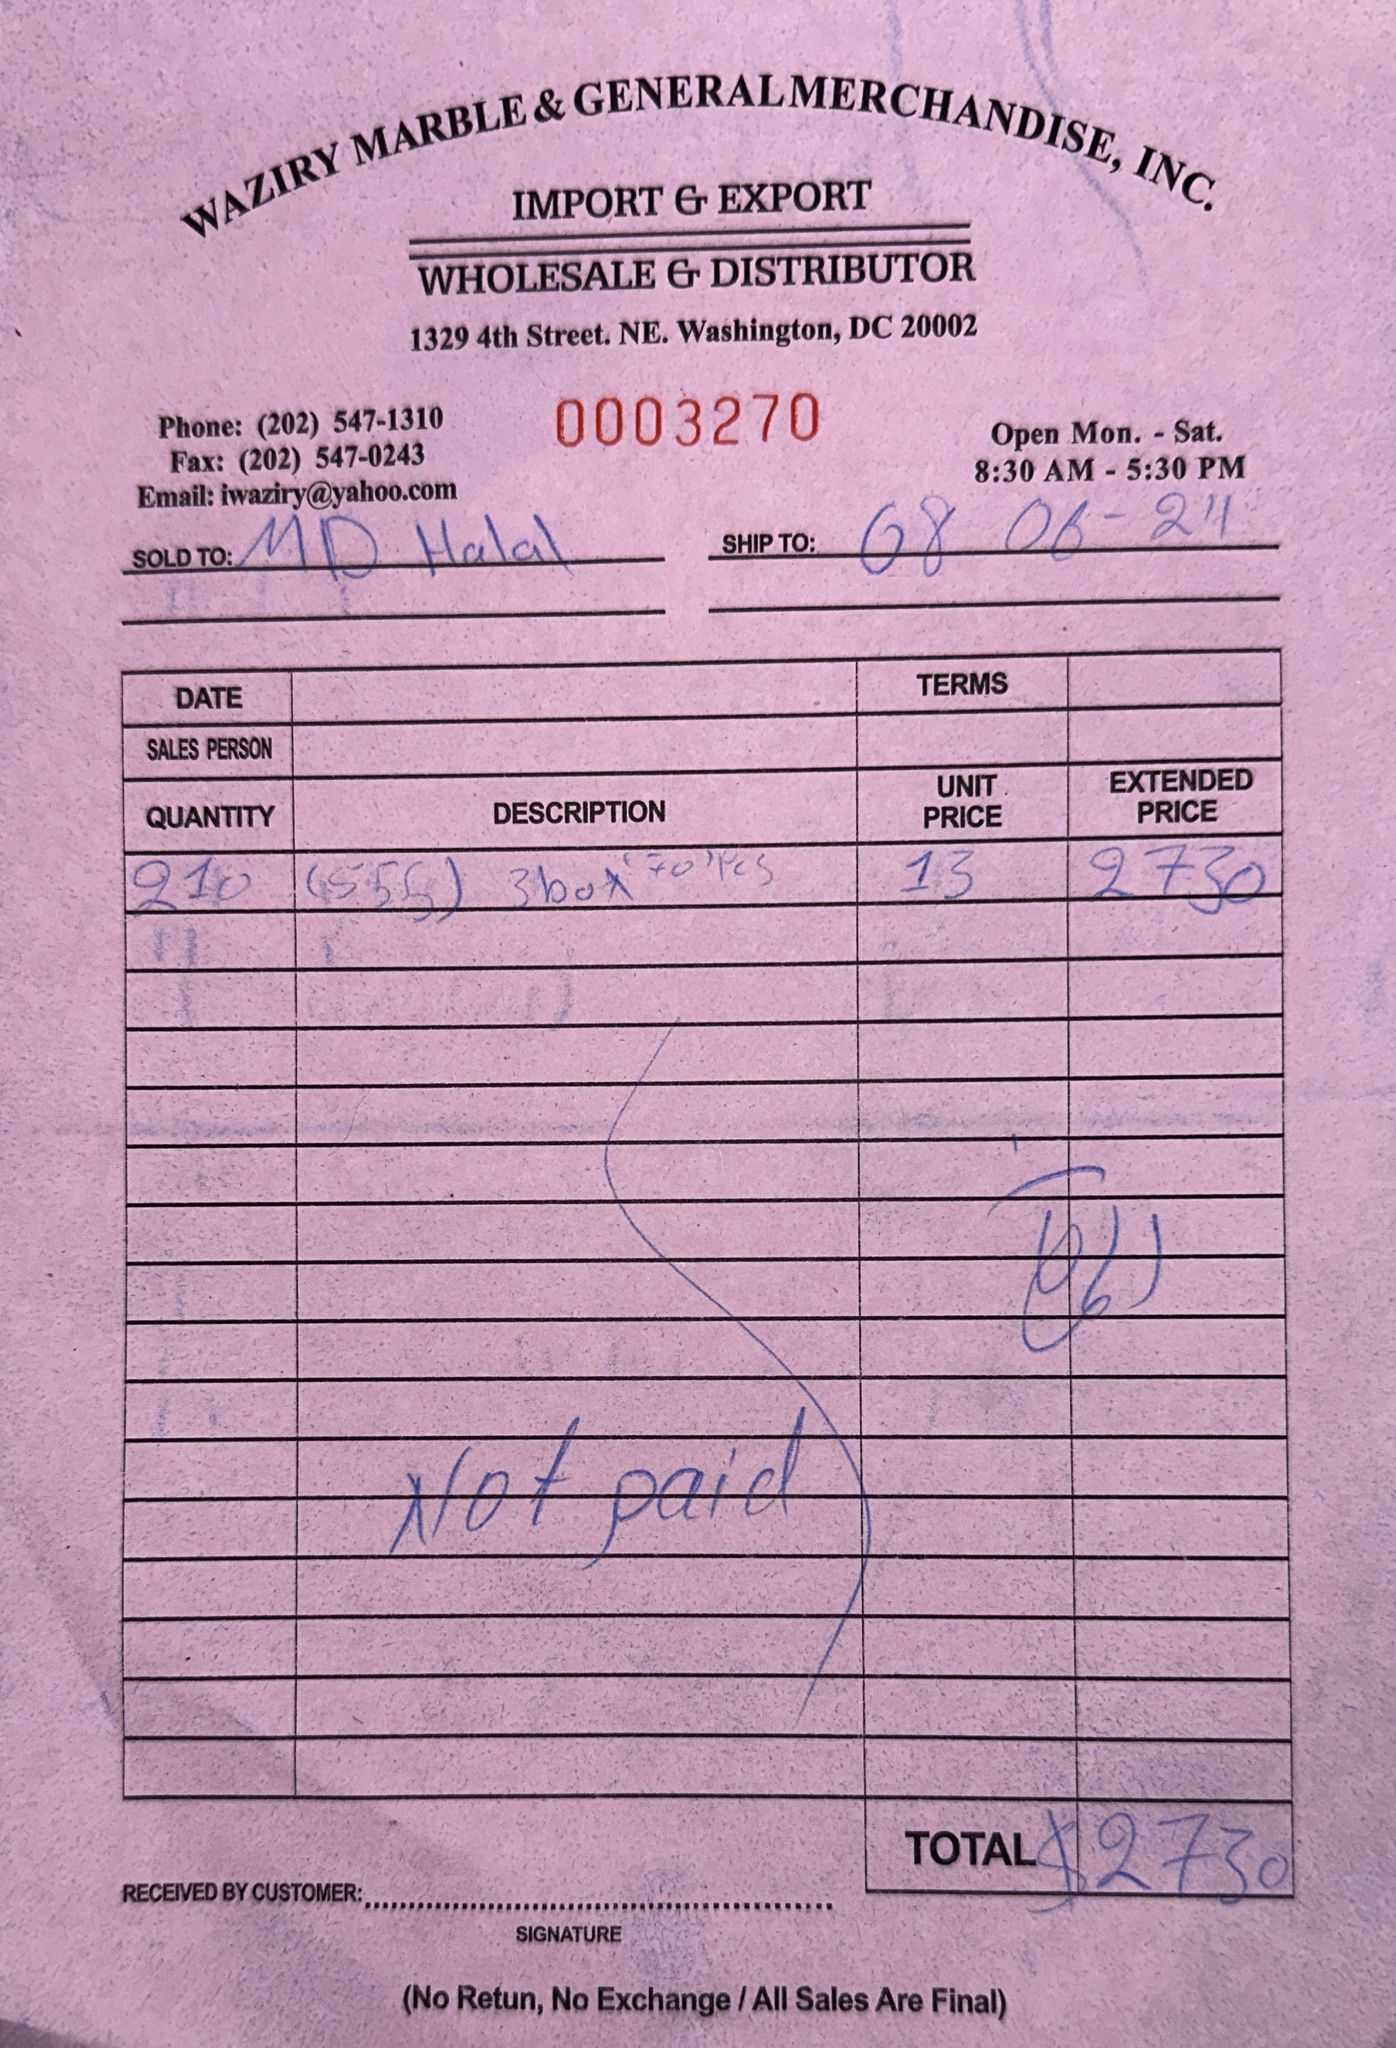 WAZIRY MARBLE & GENERAL MERCHANDISE, INC.
IMPORT & EXPORT
WHOLESALE & DISTRIBUTOR
1329 4th Street. NE. Washington, DC 20002
Phone: (202) 547-1310
Fax: (202) 547-0243
Email: iwaziry@yahoo.com
0003270
Open Mon. - Sat.
8:30 AM - 5:30 PM
SOLD TO: MD Halal
SHIP TO: 08 06-24
DATE TERMS
SALES PERSON
QUANTITY DESCRIPTION UNIT PRICE EXTENDED PRICE
210 (555) 3box "70" Pcs 13 2730
Not paid
TOTAL $2730
RECEIVED BY CUSTOMER:
SIGNATURE
(No Retun, No Exchange / All Sales Are Final)